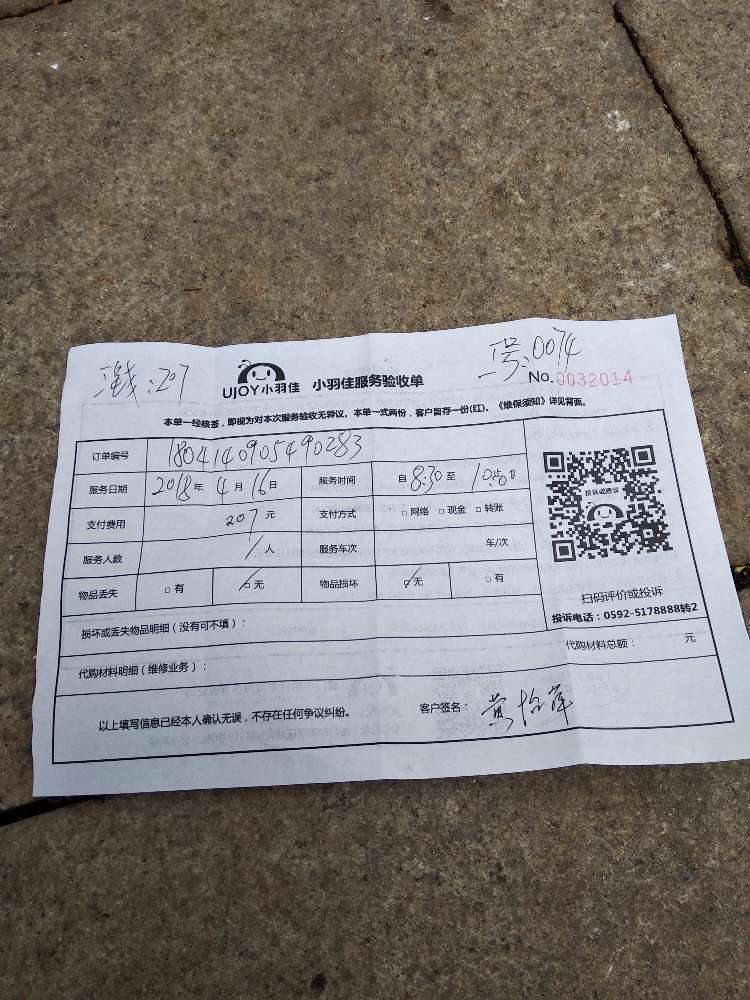 :207
工号:0074
UJOY小羽佳 小羽佳服务验收单
No.0032014
本单一经核签,即视为对本次服务验收无异议。本单一式两份,客户留存一份(红)。《维保须知》详见背面。
订单编号 180414090549 0283
服务日期 2018年 4月 16日 服务时间 自 8:30 至
支付费用 207 元 支付方式 □网络 □现金 □转账
服务人数 1人 服务车次 车/次
物品丢失 □有 ☑无 物品损坏 ☑无 □有
投诉或建议
扫码评价或投诉
投诉电话:0592-5178888转2
损坏或丢失物品明细(没有可不填):
代购材料明细(维修业务): 代购材料总额: 元
以上填写信息已经本人确认无误,不存在任何争议纠纷。 客户签名:黄怡萍